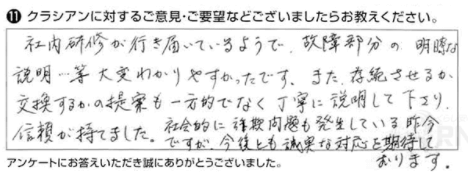 ⓫ クラシアンに対するご意見・ご要望などございましたらお教えください。
社内研修が行き届いているようで、故障部分の明瞭な
説明…等大変わかりやすかったです。また、存続させるか
交換するかの提案も一方的でなく丁寧に説明して下さり、
信頼が持てました。社会的に詐欺問題も発生している昨今
ですが、今後とも誠実な対応を期待して
おります。
アンケートにお答えいただき誠にありがとうございました。